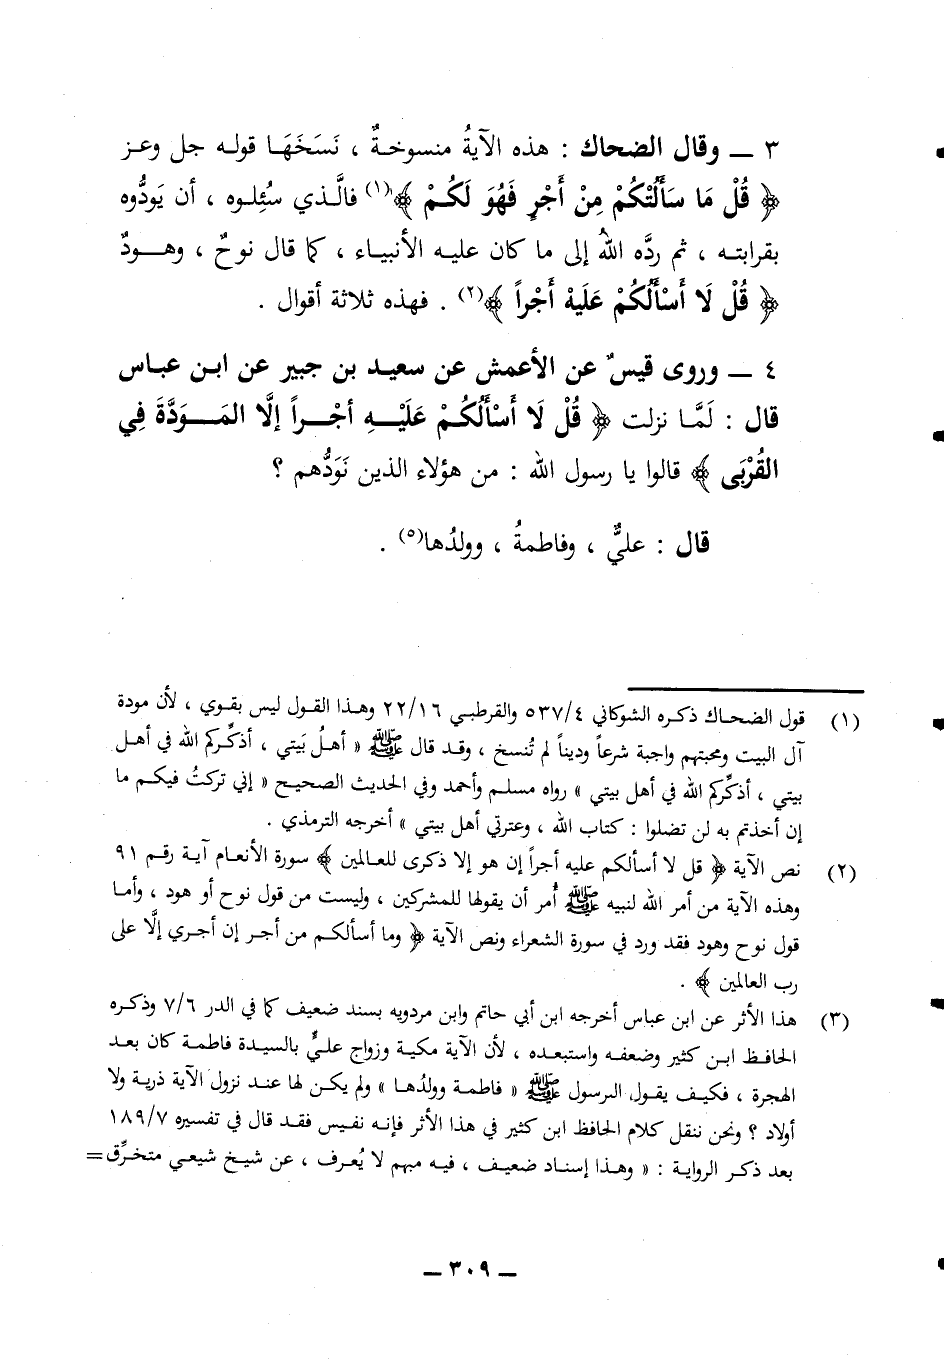 ٣ ــ وقال الضحاك : هذه الآيةُ منسوخةٌ ، نَسَخَهَا قوله جل وعز
﴿ قُلْ مَا سَأَلْتُكُمْ مِنْ أَجْرٍ فَهُوَ لَكُمْ ﴾(١) فالَّذي سُئِلوه ، أن يَودُّوه
بقرابته ، ثم ردَّه اللهُ إلى ما كان عليه الأنبياء ، كما قال نوحٌ ، وهودٌ
﴿ قُلْ لَا أَسْأَلُكُمْ عَلَيهْ أَجْراً ﴾(٢) . فهذه ثلاثة أقوال .
٤ ــ وروى قيسٌ عن الأعمش عن سعيد بن جبير عن ابن عباس
قال : لَمَّا نزلت ﴿ قُلْ لَا أَسْأَلُكُمْ عَلَيْهِ أجْراً إلَّا المَوَدَّةَ فِي
القُرْبَى ﴾ قالوا يا رسول الله : من هؤلاء الذين نَوَدُّهم ؟
قال : عليٌّ ، وفاطمةُ ، وولدُها(٥) .
(١) قول الضحاك ذكره الشوكاني ٥٣٧/٤ والقرطبي ٢٢/١٦ وهذا القول ليس بقوي ، لأن مودة
آل البيت ومحبتهم واجبة شرعاً وديناً لم تُنسخ ، وقد قال ﷺ « أهلُ بَيتي ، أذكِّركم الله في أهل
بيتي ، أذكِّركم الله في أهل بيتي » رواه مسلم وأحمد وفي الحديث الصحيح « إني تركتُ فيكم ما
إن أخذتم به لن تضلوا : كتاب الله ، وعترتي أهل بيتي » أخرجه الترمذي .
(٢) نص الآية ﴿ قل لا أسألكم عليه أجراً إن هو إلا ذكرى للعالمين ﴾ سورة الأنعام آية رقم ٩١
وهذه الآية من أمر الله لنبيه ﷺ أُمر أن يقولها للمشركين ، وليست من قول نوح أو هود ، وأما
قول نوح وهود فقد ورد في سورة الشعراء ونص الآية ﴿ وما أسألكم من أجر إن أجري إلَّا على
رب العالمين ﴾ .
(٣) هذا الأثر عن ابن عباس أخرجه ابن أبي حاتم وابن مردويه بسند ضعيف كما في الدر ٧/٦ وذكره
الحافظ ابن كثير وضعفه واستبعده ، لأن الآية مكية وزواج عليٍّ بالسيدة فاطمة كان بعد
الهجرة ، فكيف يقول الرسول ﷺ « فاطمة وولدُها » ولم يكن لها عند نزول الآية ذرية ولا
أولاد ؟ ونحن ننقل كلام الحافظ ابن كثير في هذا الأثر فإنه نفيس فقد قال في تفسيره ١٨٩/٧
بعد ذكر الرواية : « وهذا إسناد ضعيف ، فيه مبهم لا يُعرف ، عن شيخ شيعي متخرِّق=
ــ ٣٠٩ ــ